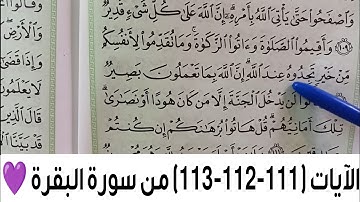 وَٱصْفَحُوا۟ حَتَّىٰ يَأْتِىَ ٱللَّهُ بِأَمْرِهِۦٓ إِنَّ ٱللَّهَ عَلَىٰ كُلِّ شَىْءٍ قَدِيرٌ
١٠٩ وَأَقِيمُوا۟ ٱلصَّلَوٰةَ وَءَاتُوا۟ ٱلزَّكَوٰةَ وَمَا تُقَدِّمُوا۟ لِأَنفُسِكُم
مِّنْ خَيْرٍ تَجِدُوهُ عِندَ ٱللَّهِ إِنَّ ٱللَّهَ بِمَا تَعْمَلُونَ بَصِيرٌ
لَن يَدْخُلَ ٱلْجَنَّةَ إِلَّا مَن كَانَ هُودًا أَوْ نَصَٰرَىٰ
تِلْكَ أَمَانِيُّهُمْ قُلْ هَاتُوا۟ بُرْهَٰنَكُمْ إِن كُنتُمْ
وَقَالُوا۟
وَٱلْأَرْضِ
وَإِذَا قَضَىٰ
لَا يَعْلَمُونَ
قَالَ ٱلَّذِينَ
قَدْ بَيَّنَّا
الآيات (111-112-113) من سورة البقرة 💜